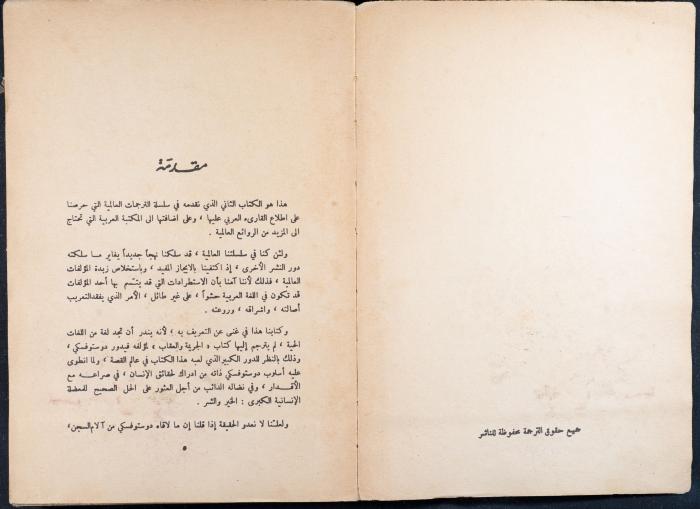 جميع حقوق الترجمة محفوظة للناشر
مقدمة
هذا هو الكتاب الثاني الذي نقدمه في سلسلة الترجمات العالمية التي حرصنا
على اطلاع القارىء العربي عليها ، وعلى اضافتها الى المكتبة العربية التي تحتاج
الى المزيد من الروائع العالمية .
ولئن كنا في سلسلتنا العالمية ، قد سلكنا نهجاً جديداً يغاير مــا سلكته
دور النشر الأخرى ، إذ اكتفينا بالايجاز المفيد ، وباستخلاص زبدة المؤلفات
العالمية ، فذلك لأننا آمنا بأن الاستطرادات التي قد يتسم بها أحد المؤلفات
قد تكون في اللغة العربية حشواً ، على غير طائل ، الأمر الذي يفقد التعريب
أصالته ، واشراقه ، وروعته .
وكتابنا هذا في غنى عن التعريف به ، لأنه يندر أن تجد لغة من اللغات
الحية ، لم يترجم إليها كتاب « الجريمة والعقاب » لمؤلفه فيدور دوستوفسكي ،
وذلك بالنظر للدور الكبير الذي لعبه هذا الكتاب في عالم القصة ، ولما انطوى
عليه أسلوب دوستوفسكي ذاته من ادراك لحقائق الإنسان ، في صراعه مع
الأقدار ، وفي نضاله الدائب من أجل العثور على الحل الصحيح للمعضلة
الإنسانية الكبرى : الخير والشر .
ولعلنا لا نعدو الحقيقة إذا قلنا إن ما لاقاه دوستوفسكي من آلام السجن ،
٥